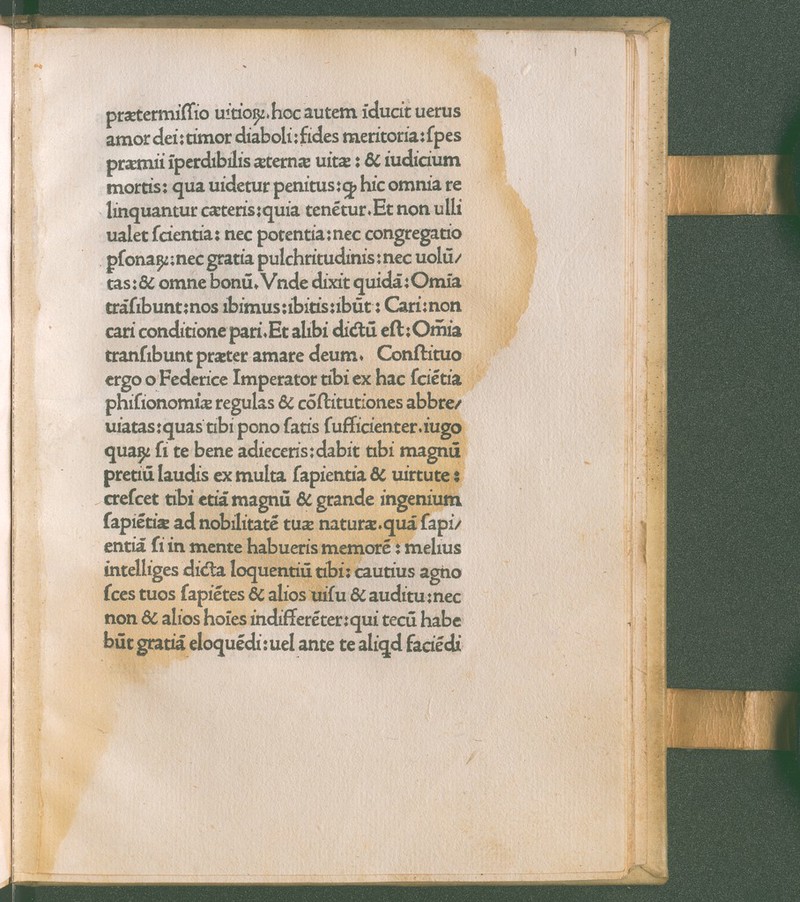 prætermiſſio uitioꝝ.hoc autem īducit uerus
amor dei:timor diaboli:fides meritoria:ſpes
præmii īperdibilis æternæ uitæ : & iudicium
mortis: qua uidetur penitus:ꝙ hic omnia re
linquantur cæteris:quia tenẽtur.Et non ulli
ualet ſcientia: nec potentia:nec congregatio
pſonaꝝ:nec gratia pulchritudinis:nec uolũ/
tas:& omne bonũ.Vnde dixit quidã:Om̃ia
trãſibunt:nos ibimus:ibitis:ibũt : Cari:non
cari conditione pari.Et alibi dictũ eſt:Om̃ia
tranſibunt præter amare deum. Conſtituo
ergo o Federice Imperator tibi ex hac ſciẽtia
phiſionomiæ regulas & cõſtitutiones abbre/
uiatas:quas tibi pono ſatis ſufficienter.iugo
quaꝝ ſi te bene adieceris:dabit tibi magnũ
pretiũ laudis ex multa ſapientia & uirtute :
creſcet tibi etiã magnũ & grande ingenium
ſapiẽtiæ ad nobilitatẽ tuæ naturæ.quã ſapi/
entiã ſi in mente habueris memorẽ : melius
intelliges dicta loquentiũ tibi: cautius agno
ſces tuos ſapiẽtes & alios uiſu & auditu:nec
non & alios hoĩes indifferẽter:qui tecũ habe
bũt gratiã eloquẽdi:uel ante te aliqd faciẽdi